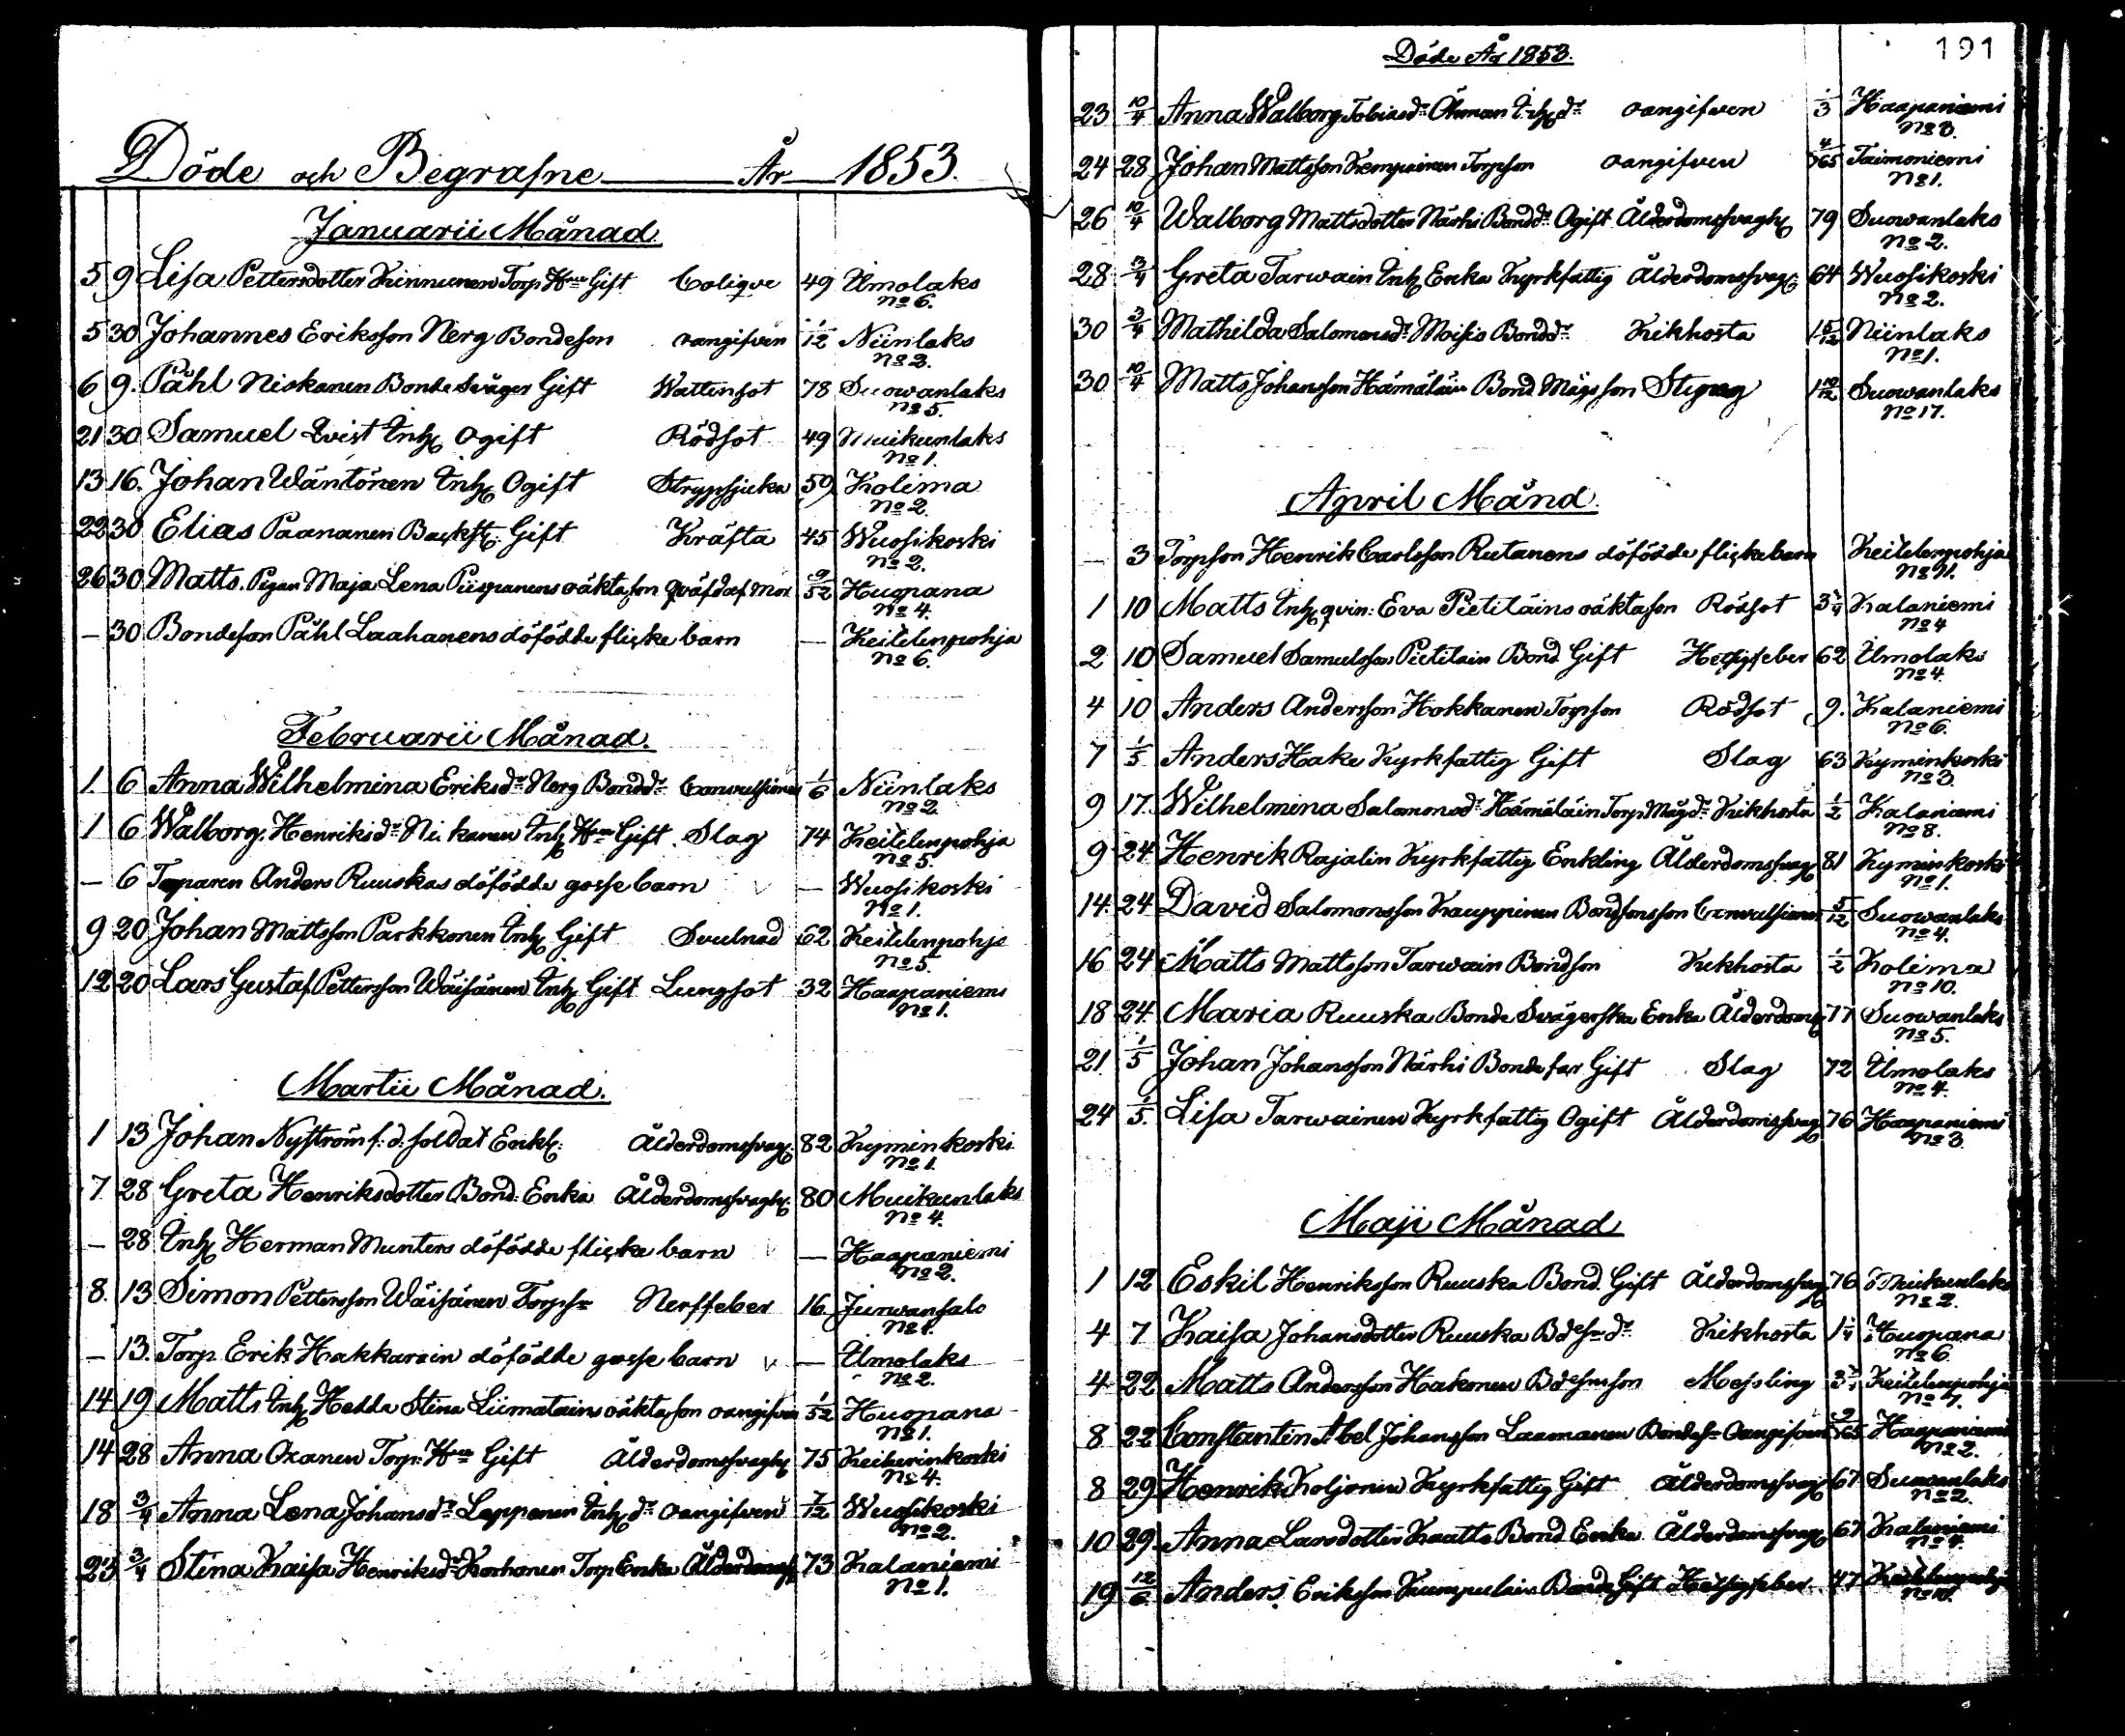 Döde och Begrafne År 1853.
Januarii Månad
5 9 Lisa Pettersdotter Kinnunen Torp. Hru Gift Colique 49 Umolaks
No 6.
5 30 Johannes Eriksson Nerg Bondeson oangifven 1/12 Niinlaks
No 2.
6 9. Påhl Niskanen Bonde Svåger Gift Wattensot 78 Suowanlaks
No 5.
21 30 Samuel Qvist Inh. Ogift Rödsot 49 Muikunlaks
No 1.
13 16. Johan Wäntönen Inh. Ogift Strypsjuka 59 Kolima
No 2.
22 30 Elias Paananen Backst. Gift Kräfta 45 Wuosikoski
No 2.
26 30 Matts. Pigan Maja Lena Piispanens oäkta son qväfd af mor 9/52 Huopana
No 4.
— 30 Bondeson Påhl Laahanens döfödde flicke barn — Keitelenpohja
No 6.
Februarii Månad.
1 6 Anna Wilhelmina Eriksdr Nerg Bonddr Convulsioner 1/6 Niinlaks
No 2.
1 6 Walborg Henriksdr Ni kanen Inh. Hru Gift. Slag 74 Keitelenpohja
No 5.
— 6 Torparen Anders Ruuskas döfödde gosse barn — Wuosikoski
No 1.
9 20 Johan Mattsson Parkkonen Inh. Gift Svulnad 62 Keitelenpohja
No 5.
12 20 Lars Gustaf Pettersson Wäisänen Inh. Gift Lungsot 32 Haapaniemi
No 1.
Martii Månad.
1 13 Johan Nyström f: d: soldat Enkl. Ålderdomssvag. 82 Kyminkoski
No 1.
7 28 Greta Henriksdotter Bond. Enka Ålderdomssvagh. 80 Muikunlaks
No 4.
— 28 Inh. Herman Munters döfödde flicke barn — Haapaniemi
No 2.
8. 13 Simon Pettersson Wäisänen Torpsn Nerffeber 16 Jurwansalo
No 1.
— 13. Torp. Erik Hakkarain döfödde gosse barn — Umolaks
No 2.
14 19 Matts Inh. Hedda Stina Liimatains oäkta son oangifven 1/52 Huopana
No 1.
14 28 Anna Oxanen Torp. Hru Gift Ålderdomssvagh. 75 Keiherinkoski
No 4.
18 3/4 Anna Lena Johansdr Leppänen Inh. dr oangifven 7/12 Wuosikoski
No 2.
23 3/4 Stina Kaisa Henriksdr Korhonen Torp Enka Ålderdomss 73 Kalaniemi
No 1.
191
Döde År 1853.
23 10/4 Anna Walborg Tobiasdr Öhman Inh. dr oangifven 1/3 Haapaniemi
No 3.
24 28 Johan Mattsson Kemppainen Torpson oangifven 4/365 Taimoniemi
No 1.
26 10/4 Walborg Mattsdotter Närhi Bonddr Ogift Ålderdomssvagh. 79 Suowanlaks
No 2.
28 3/4 Greta Tarwain Inh. Enka Kyrkfattig Ålderdomssvag. 64 Wuosikoski
No 2.
30 3/4 Mathilda Salomonsdr Moisio Bonddr Kikhosta 1 5/12 Niinlaks
No 1.
30 10/4 Matts Johansson Hämäläin Bond Mågs son Stygng 1 10/12 Suowanlaks
No 17.
April Månd.
— 3 Torpson Henrik Carlsson Rutanens döfödde flicke barn Keitelenpohja
No 11.
1 10 Matts Inh. qvin: Eva Pietiläins oäkta son Rödsot 3 3/4 Kalaniemi
No 4
2 10 Samuel Samuelsson Pietiläin Bond Gift Hetsigfeber 62 Umolaks
No 4.
4 10 Anders Andersson Hokkanen Torpson Rödsot 9. Kalaniemi
No 6.
7 1/5 Anders Hake Kyrkfattig Gift Slag 63 Kyminkoski
No 3
9 17. Wilhelmina Salomonsdr Hämäläin Torp. Mågdr Kikhosta 1/2 Kalaniemi
No 8.
9 24 Henrik Rajalin Kyrkfattig Enkling Ålderdomssvag 81 Kyminkoski
No 1.
14. 24 David Salomonsson Kauppinen Bondsonsson Convulsioner 5/12 Suowanlaks
No 4.
16 24 Matts Mattsson Tarwain Bondson Kikhosta 1/2 Kolima
No 10.
18 24. Maria Ruuska Bonde Svägerska Enka Ålderdoms 77 Suowanlaks
No 5.
21. 1/5 Johan Johansson Närhi Bonde far Gift Slag 72 Umolaks
No 4.
24 1/5. Lisa Tarwainen Kyrkfattig Ogift Ålderdomssvag 76 Haapaniemi
No 3
Maji Månad
1 12 Eskil Henriksson Ruuska Bond. Gift Ålderdomssvag 76 Muikunlaks
No 2.
4 7 Kaisa Johansdotter Ruuska Bdesn dr Kikhosta 1 1/4 Huopana
No 6.
4 22 Matts Andersson Hakonen Bdesnson Messling Keitelenpohja
No 7.
8 22 Constantin Abel Johansson Laamanen Bondesn Oangifven 9/365 Haapaniemi
No 2.
8 29 Henrik Koljonen Kyrkfattig Gift Ålderdomssvag 67 Suowanlaks
No 2.
10 29. Anna Larsdotter Kaatto Bond Enka Ålderdomssvag 67 Kalaniemi
No 4.
19 12/6 Anders Eriksson Kumpulain Bonde Gift Hetsigfeber 47 Keitelenpohja
No 10.